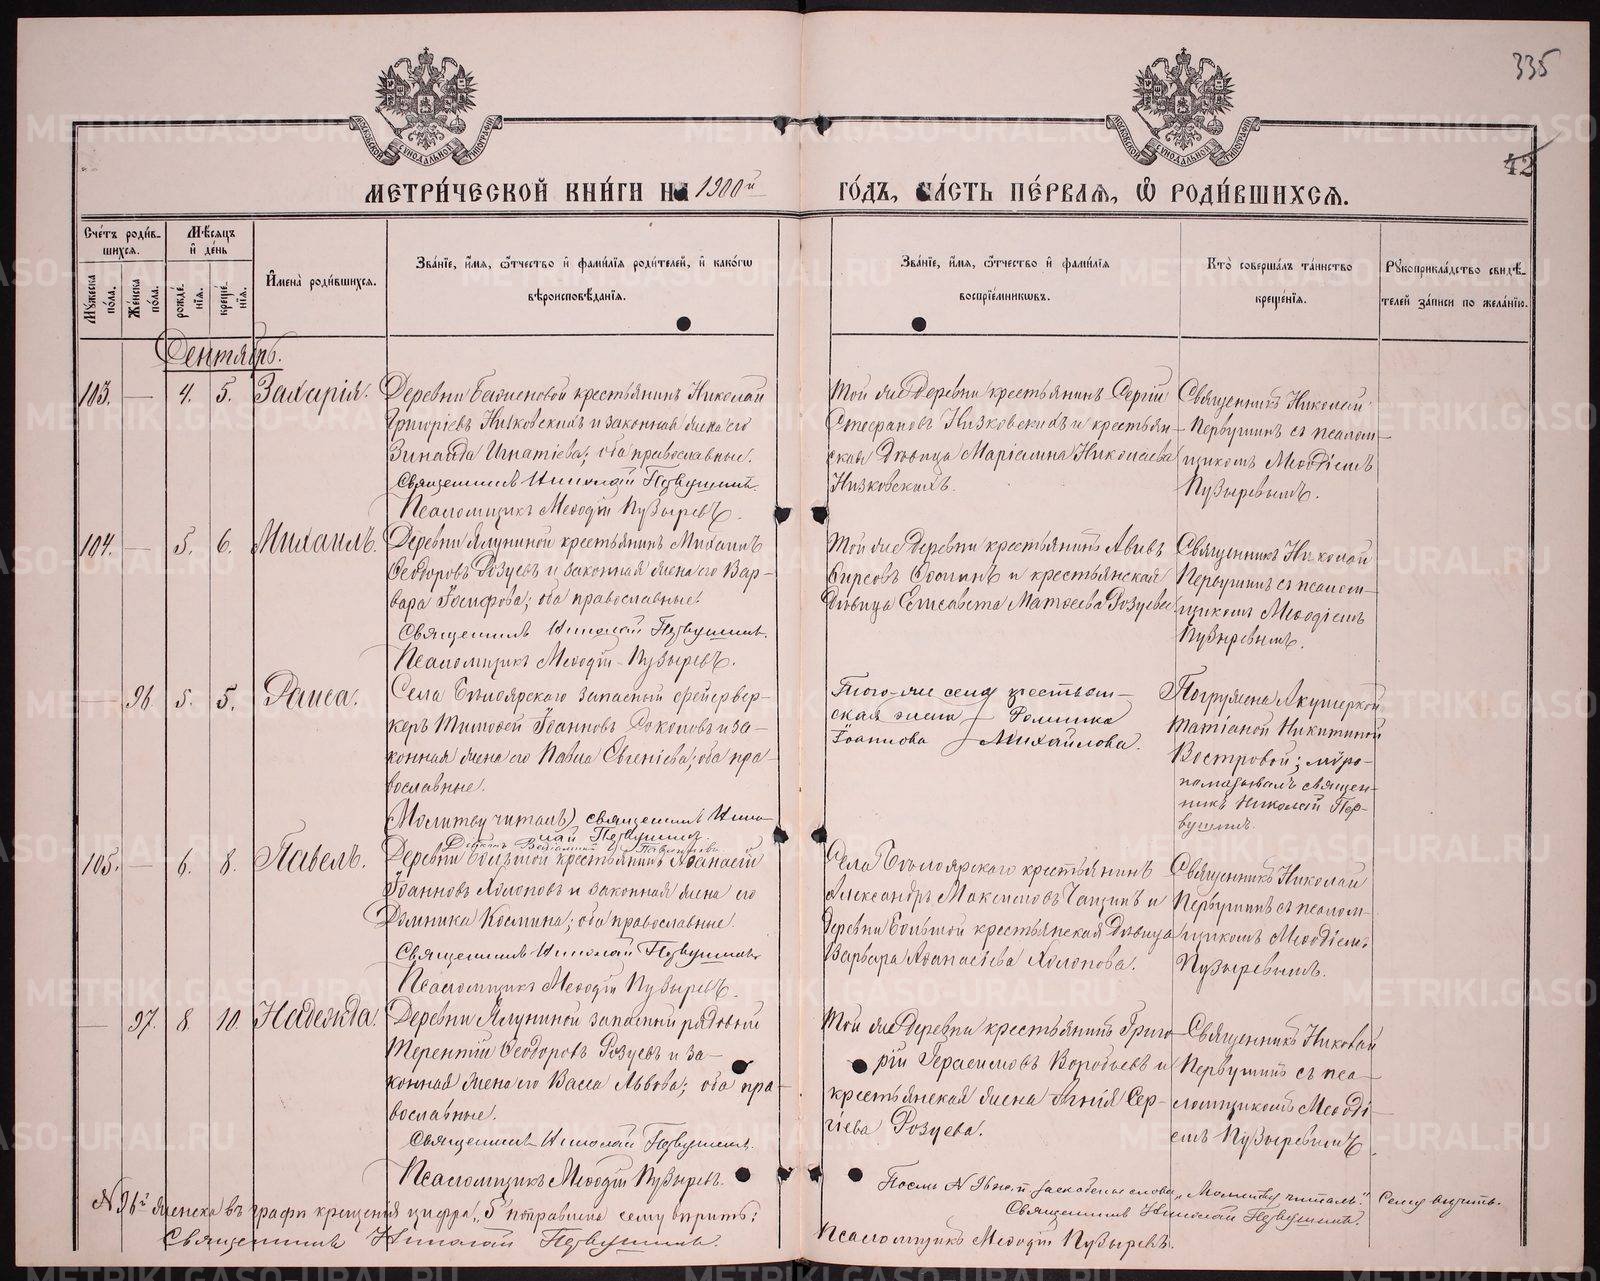 335
42
МОСКОВСКОЙ СУНОДАЛЬНОЙ ТИПОГРАФІИ
МОСКОВСКОЙ СУНОДАЛЬНОЙ ТИПОГРАФІИ
МЕТРИ́ЧЕСКОЙ КНИ́ГИ НА 1900й ГО́ДЪ, ЧА́СТЬ ПЕ́РВАЯ, Ѡ҆ РОДИ́ВШИХСЯ.
Сче́тъ роди́вшихся.
Мѣ́сяцъ и҆ де́нь
Мꙋ́жеска по́ла.
Же́нска по́ла.
рожде́нїя.
креще́нїя.
И҆мена̀ роди́вшихся.
Зва́нїе, и҆́мя, ѻ҆́тчество и҆ фами́лїя роди́телей, и҆ како́гѡ
вѣроисповѣ́данїя.
Зва́нїе, и҆́мя, ѻ҆́тчество и҆ фами́лїя
воспрїе́мникѡвъ.
Кто̀ соверша́лъ та́инство
креще́нїя.
Рꙋкоприкла́дство свидѣ́-
телей за́писи по жела́нїю.
Сентябрь.
103. — 4. 5. Захарія.
Деревни Баженовой крестьянинъ Николай
Григоріевъ Низковскихъ и законная жена его
Зинаида Игнатіева; оба православные.
Священникъ Николай Первушинъ.
Псаломщикъ Меѳодій Пузыревъ.
Той же деревни крестьянинъ Сергій
Стефановъ Низковскихъ и крестьян-
ская дѣвица Маріамна Николаева
Низковскихъ.
Священникъ Николай
Первушинъ съ псалом-
щикомъ Меѳодіемъ
Пузыревымъ.
104. — 5. 6. Михаилъ.
Деревни Ялуниной крестьянинъ Михаилъ
Ѳеодоровъ Розуевъ и законная жена его Вар-
вара Іосифова; оба православные.
Священникъ Николай Первушинъ.
Псаломщикъ Меѳодій Пузыревъ.
Той же деревни крестьянинъ Авивъ
и крестьянская
дѣвица Елисавета Матѳеева Розуева
Священникъ Николай
Первушинъ съ псалом-
щикомъ Меѳодіемъ
Пузыревымъ.
— 96. 5. 5. Раиса.
Села Бѣлоярскаго запасный фейервер-
керъ Тимоѳей Іоанновъ Соколовъ и за-
конная жена его Павла Евгеніева; оба пра-
вославные.
Молитву читалъ) священникъ Нико-
лай Первушинъ.
Того-же села крестьян-
ская жена Домника
Іоаннова Михайлова.
Погружена акушеркой
Татіаной Никитиной
Востровой; мѵро-
помазывалъ священ-
никъ Николай Пер-
вушинъ.
105. — 6. 8. Павелъ.
Деревни Большой крестьянинъ Аѳанасій
Іоанновъ Холоповъ и законная жена его
Домника Космина; оба православные.
Священникъ Николай Первушинъ
Псаломщикъ Меѳодій Пузыревъ.
Села Бѣлоярскаго крестьянинъ
Александръ Максимовъ и
деревни Большой крестьянская дѣвица
Варвара Аѳанасіева Холопова.
Священникъ Николай
Первушинъ съ псалом-
щикомъ Меѳодіемъ
Пузыревымъ.
— 97. 8. 10. Надежда.
Деревни Ялуниной запасный рядовой
Терентій Ѳеодоровъ Розуевъ и за-
конная жена его Васса Львова; оба пра-
вославные.
Священникъ Николай Первушинъ.
Псаломщикъ Меѳодій Пузыревъ.
Той же деревни крестьянинъ Григо-
рій Герасимовъ Воробьевъ и
крестьянская жена Агнія Сер-
гіева Розуева.
Священникъ Николай
Первушинъ съ пса-
ломщикомъ Меѳоді-
емъ Пузыревымъ.
N 96й женска въ графѣ крещенія цифра „5" поправлена сему вѣрить:
Священникъ Николай Первушинъ.
Послѣ N 96 слова „Молитву читалъ". Сему вѣрить.
Священникъ Николай Первушинъ.
Псаломщикъ Меѳодій Пузыревъ.
METRIKI.GASO-URAL.RU